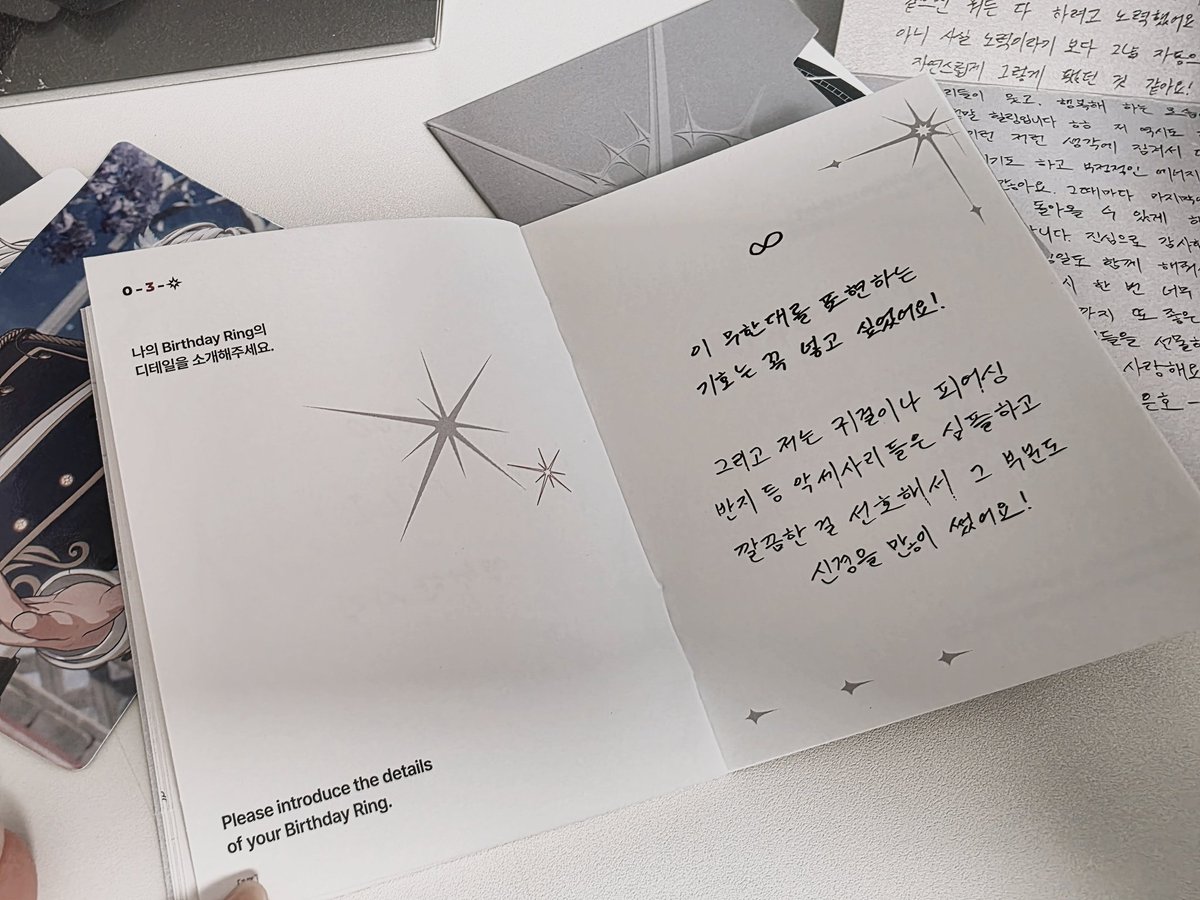 0-3-
나의 Birthday Ring의
디테일을 소개해주세요.
Please introduce the details
of your Birthday Ring.
∞
이 무한대를 표현하는
기호는 꼭 넣고 싶었어요!
그리고 저는 귀걸이나 피어싱
반지 등 악세사리들은 심플하고
깔끔한 걸 선호해서 그 부분도
신경을 많이 썼어요!
뭐든 다 하려고 노력했어요
아니 사실 노력이라기 보다 그냥
자연스럽게 그렇게 됐던 것 같아요!
웃고. 행복해 하는
힐링입니다 ㅎㅎ 저 역시도
저런 생각에 잠겨서
하고 부정적인 에너지
그때마다 마지막
돌아올 수 있게
진심으로
함께
한 번 너무
또 좋은
사랑해요
은호 -